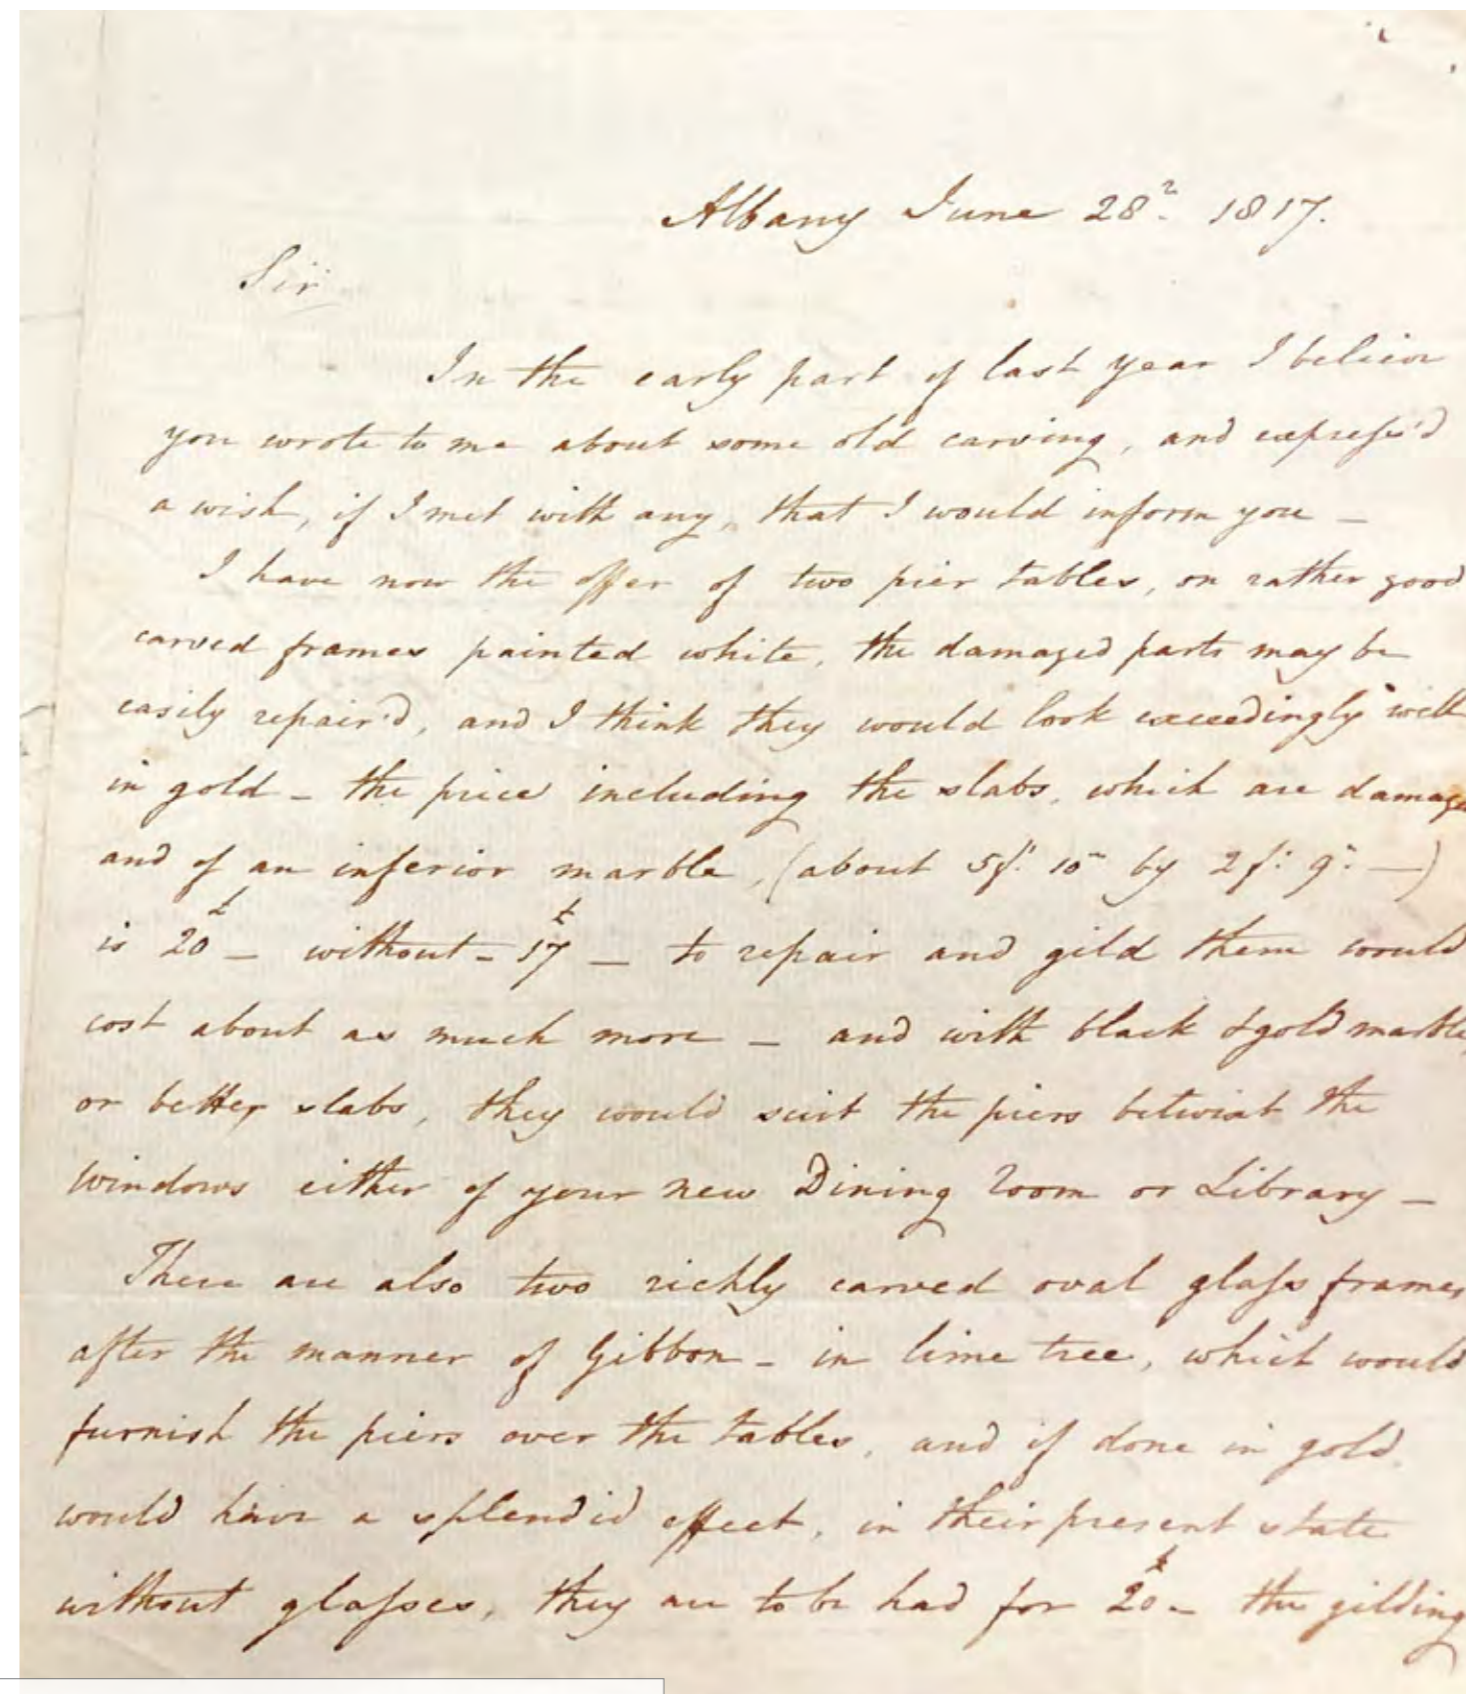 Albany June 28.ᵗ 1817.
Sir
In the early part of last year I believe
you wrote to me about some old carving, and expreſs'd
a wish, if I met with any, that I would inform you —
I have now the offer of two pier tables, on rather good
carved frames painted white, the damaged parts may be
easily repair'd, and I think they would look exceedingly well
in gold — the price including the slabs, which are damaged
and of an inferior marble, (about 5f: 10in by 2f: 9: —)
is 20£ — without — 17£ — to repair and gild them would
cost about as much more — and with black & gold marble,
or better slabs, they would suit the piers betwixt the
windows either of your new Dining room or Library —
There are also two richly carved oval glaſs frames
after the manner of Gibbon — in lime tree, which would
furnish the piers over the tables, and if done in gold
would have a splendid effect, in their present state
without glaſses, they are to be had for 20£ — the gilding